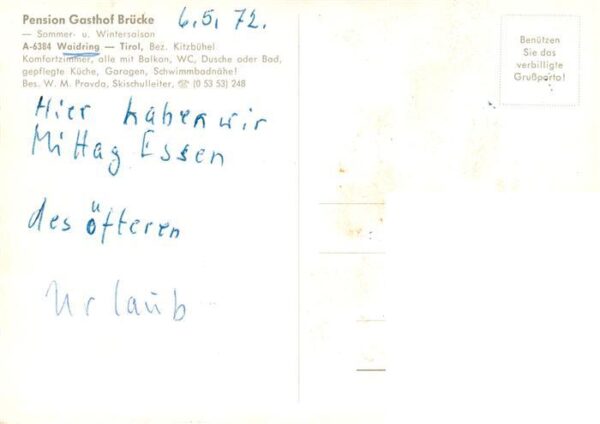 Pension Gasthof Brücke
6.5.72.
— Sommer- u. Wintersaison
A-6384 Waidring — Tirol, Bez. Kitzbühel
Komfortzimmer, alle mit Balkon, WC, Dusche oder Bad,
gepflegte Küche, Garagen, Schwimmbadnähe!
Bes. W. M. Pravda, Skischulleiter, ☏ (0 53 53) 248
Hier haben wir
Mittag Essen
des öfteren
Urlaub
Benützen
Sie das
verbilligte
Grußporto!